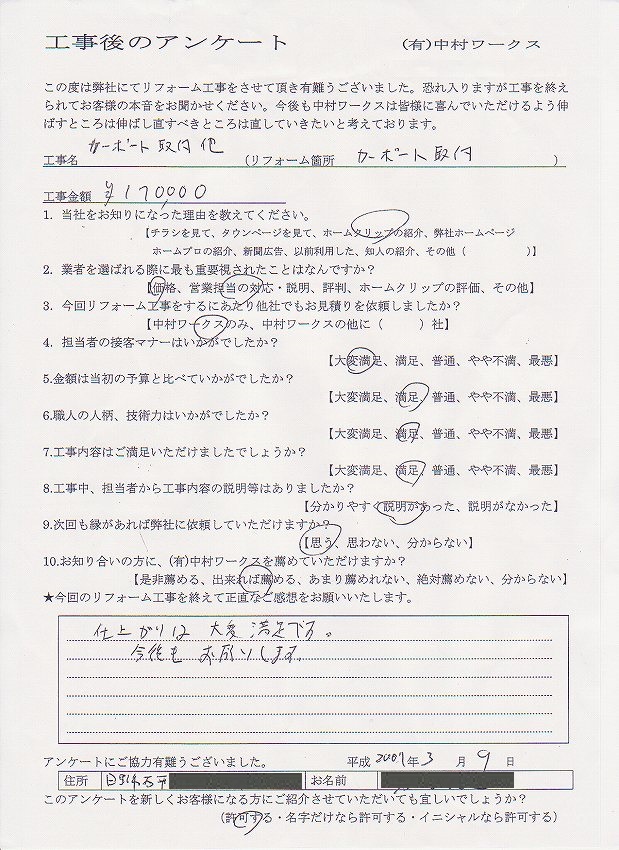 工事後のアンケート (有)中村ワークス
この度は弊社にてリフォーム工事をさせて頂き有難うございました。恐れ入りますが工事を終え
られてお客様の本音をお聞かせください。今後も中村ワークスは皆様に喜んでいただけるよう伸
ばすところは伸ばし直すべきところは直していきたいと考えております。
工事名 カーポート取付他 (リフォーム箇所 カーポート取付 )
工事金額 ¥170,000
1. 当社をお知りになった理由を教えてください。
【チラシを見て、タウンページを見て、ホームクリップの紹介、弊社ホームページ
ホームプロの紹介、新聞広告、以前利用した、知人の紹介、その他( )】
2. 業者を選ばれる際に最も重要視されたことはなんですか?
【価格、営業担当の対応・説明、評判、ホームクリップの評価、その他】
3. 今回リフォーム工事をするにあたり他社でもお見積りを依頼しましたか?
【中村ワークスのみ、中村ワークスの他に( )社】
4. 担当者の接客マナーはいかがでしたか?
【大変満足、満足、普通、やや不満、最悪】
5.金額は当初の予算と比べていかがでしたか?
【大変満足、満足、普通、やや不満、最悪】
6.職人の人柄、技術力はいかがでしたか?
【大変満足、満足、普通、やや不満、最悪】
7.工事内容はご満足いただけましたでしょうか?
【大変満足、満足、普通、やや不満、最悪】
8.工事中、担当者から工事内容の説明等はありましたか?
【分かりやすく説明があった、説明がなかった】
9.次回も縁があれば弊社に依頼していただけますか?
【思う、思わない、分からない】
10.お知り合いの方に、(有)中村ワークスを薦めていただけますか?
【是非薦める、出来れば薦める、あまり薦めれない、絶対薦めない、分からない】
★今回のリフォーム工事を終えて正直なご感想をお願いいたします。
仕上がりは 大変満足です。
今後も お願いします。
アンケートにご協力有難うございました。 平成 2007年 3 月 9 日
住所 お名前
このアンケートを新しくお客様になる方にご紹介させていただいても宜しいでしょうか?
(許可する・名字だけなら許可する・イニシャルなら許可する)